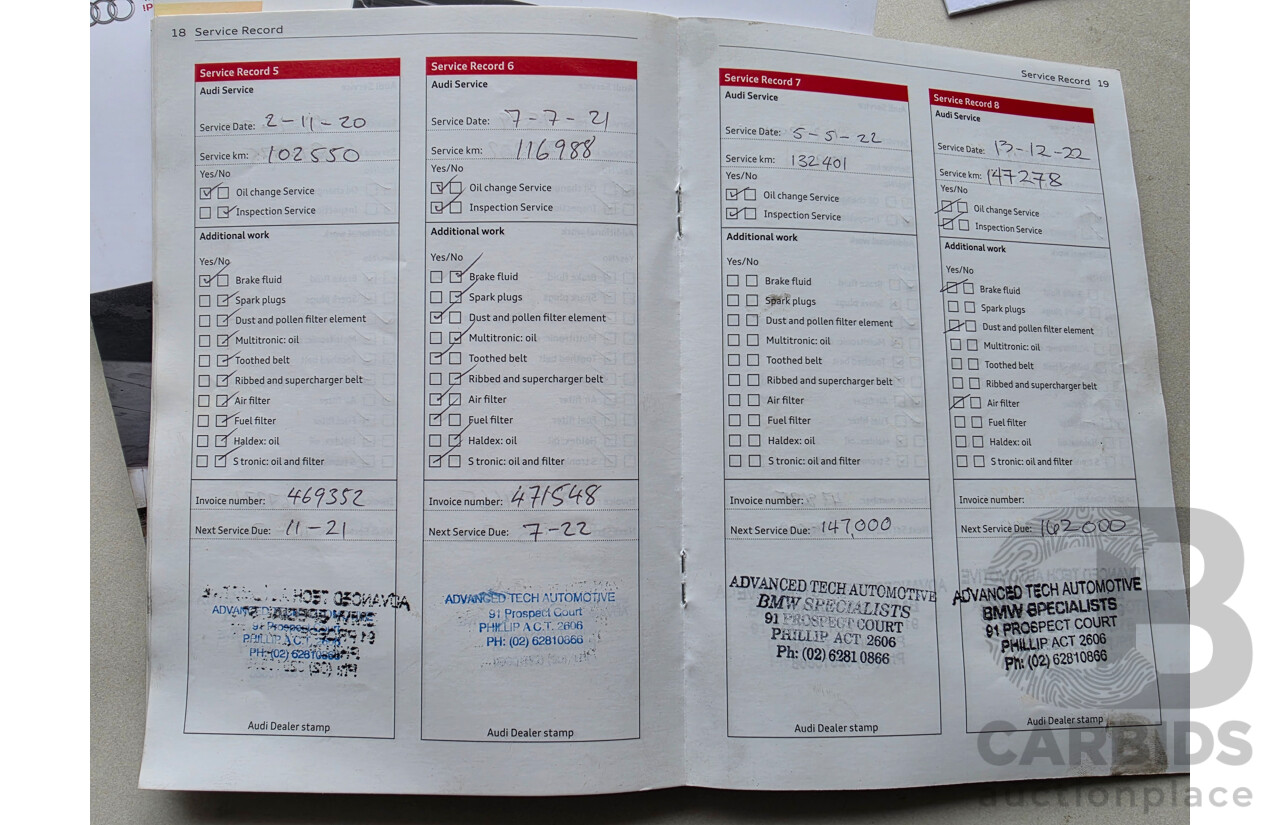 18 Service Record
Service Record 5
Audi Service
Service Date: 2-11-20
Service km: 102550
Yes/No
Oil change Service
Inspection Service
Additional work
Yes/No
Brake fluid
Spark plugs
Dust and pollen filter element
Multitronic: oil
Toothed belt
Ribbed and supercharger belt
Air filter
Fuel filter
Haldex: oil
S tronic: oil and filter
Invoice number: 469352
Next Service Due: 11-21
PH: (02) 62810866
Audi Dealer stamp
Service Record 6
Audi Service
Service Date: 7-7-21
Service km: 116988
Yes/No
Oil change Service
Inspection Service
Additional work
Yes/No
Brake fluid
Spark plugs
Dust and pollen filter element
Multitronic: oil
Toothed belt
Ribbed and supercharger belt
Air filter
Fuel filter
Haldex: oil
S tronic: oil and filter
Invoice number: 471548
Next Service Due: 7-22
ADVANCED TECH AUTOMOTIVE
91 Prospect Court
PHILLIP A.C.T. 2606
PH: (02) 62810866
Audi Dealer stamp
Service Record 19
Service Record 7
Audi Service
Service Date: 5-5-22
Service km: 132401
Yes/No
Oil change Service
Inspection Service
Additional work
Yes/No
Brake fluid
Spark plugs
Dust and pollen filter element
Multitronic: oil
Toothed belt
Ribbed and supercharger belt
Air filter
Fuel filter
Haldex: oil
S tronic: oil and filter
Invoice number:
Next Service Due: 147,000
ADVANCED TECH AUTOMOTIVE
BMW SPECIALISTS
91 PROSPECT COURT
PHILLIP ACT 2606
Ph: (02) 6281 0866
Audi Dealer stamp
Service Record 8
Audi Service
Service Date: 13-12-22
Service km: 147278
Yes/No
Oil change Service
Inspection Service
Additional work
Yes/No
Brake fluid
Spark plugs
Dust and pollen filter element
Multitronic: oil
Toothed belt
Ribbed and supercharger belt
Air filter
Fuel filter
Haldex: oil
S tronic: oil and filter
Invoice number:
Next Service Due: 162000
ADVANCED TECH AUTOMOTIVE
BMW SPECIALISTS
91 PROSPECT COURT
PHILLIP ACT 2606
Ph: (02) 62810866
Audi Dealer stamp
CARBIDS
auctionplace